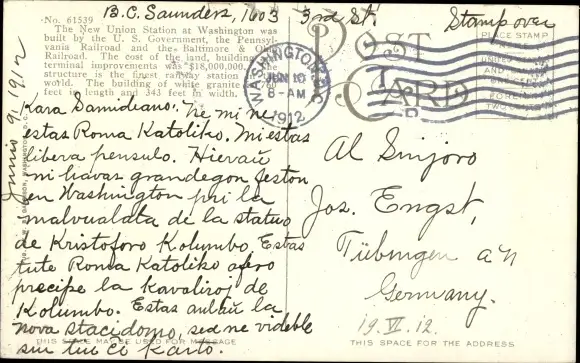 B.C. Saunders, 1003 3rd St.
Stamp over
No. 61539
The New Union Station at Washington was
built by the U. S. Government, the Pennsyl-
vania Railroad and the Baltimore & Ohio
Railroad. The cost of the land, building
terminal improvements was $18,000,000. The
structure is the finest railway station
world. The building of white granite 760
feet in length and 343 feet in width.
POST CARD
PLACE STAMP
WASHINGTON, D.C.
JUN 10
8-AM
1912
Junio 9, 1912
Kara Samidiano: Ne mi ne
estas Roma Katoliko. Mi estas
libera pensulo. Hieraŭ
ni havas grandegon feston
en Washington pri la
malvualata de la statuo
de Kristoforo Kolumbo. Estas
tute Roma Katoliko afero
precipe la Kavaliroj de
Kolumbo. Estas ankaŭ la
nova stacidomo, sed ne videble
sur tiu ĉi karto.
Al Sinjoro
Jos. Engst,
Tübingen a/n
Germany.
19. VI. 12.
THIS SPACE MAY BE USED FOR MESSAGE
THIS SPACE FOR THE ADDRESS